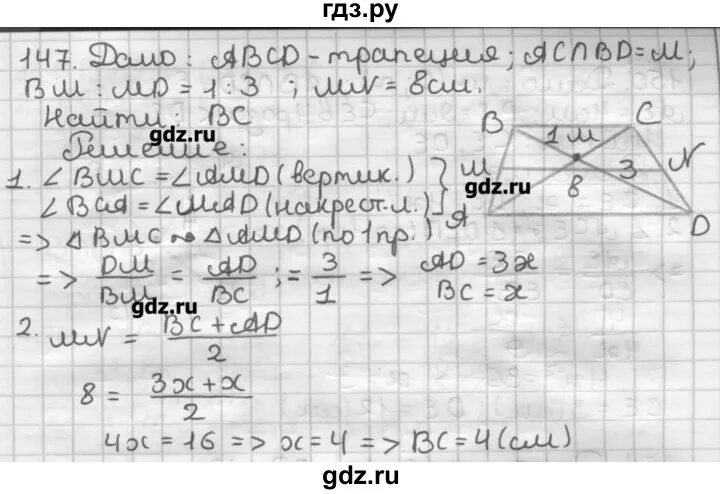 гдз.ру
147. Дамо: ABCD - трапеция; AC∩BD=M;
BM : MD = 1:3 ; MN = 8см.
Найти: BC
gdz.ru
Решение:
B C
1 M
M N
3
8
A D
gdz.ru
1. ∠BMC = ∠AMD (вертик.)
∠BCA = ∠MAD (накрест.л.)
=> △BMC ~ △AMD (по 1 пр.)
=> DM/BM = AD/BC ; = 3/1 => AD = 3x
BC = x
gdz.ru
2. MN = BC + AD / 2
8 = 3x + x / 2
4x = 16 => x = 4 => BC = 4 (см)
gdz.ru